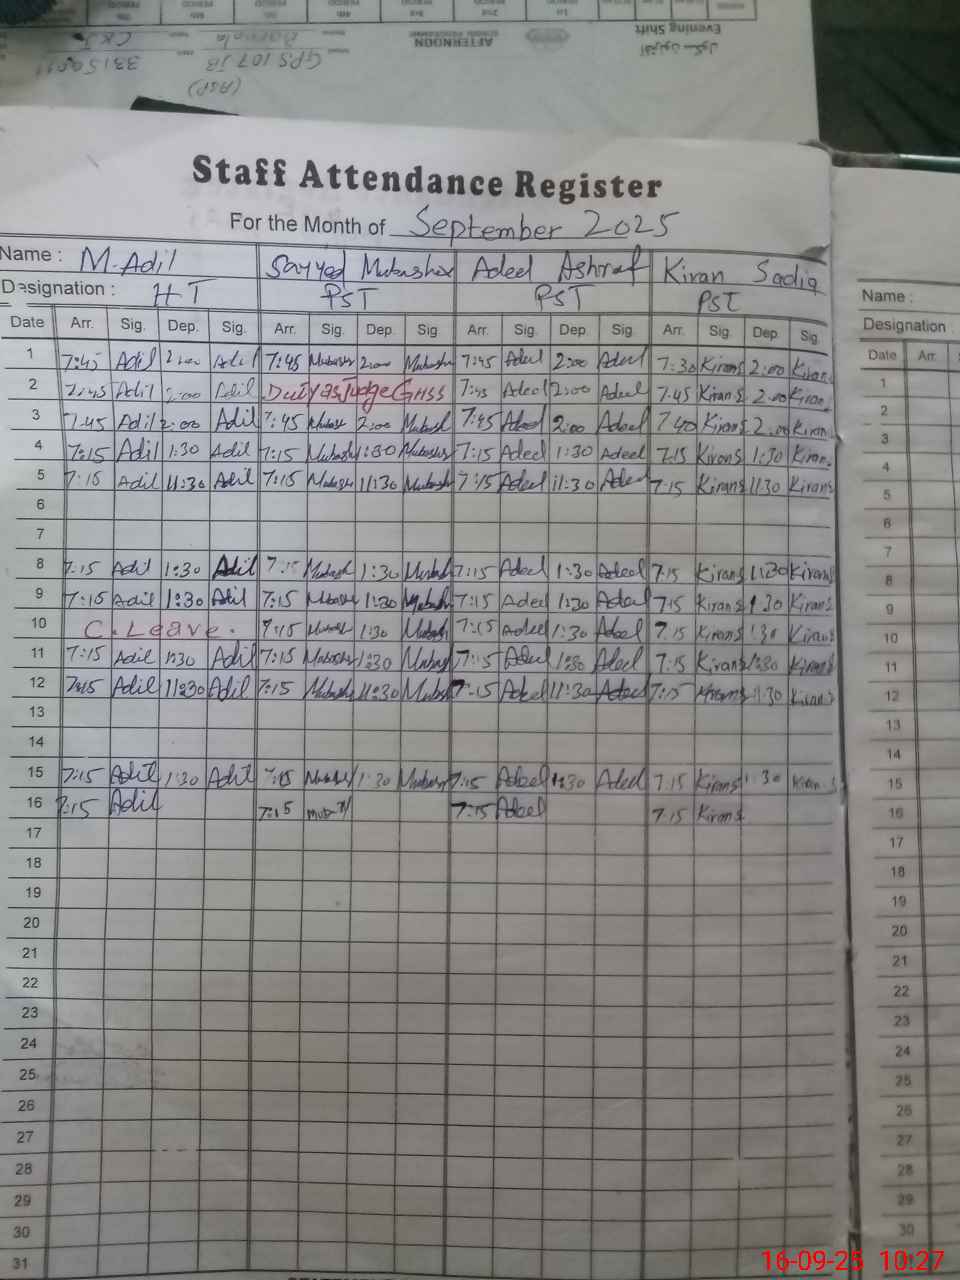 1st 2nd 3rd 4th 5th 6th 7th
PERIOD PERIOD PERIOD PERIOD PERIOD PERIOD
Evening Shift
AFTERNOON
GPS 107 JB
Staff Attendance Register
For the Month of September 2025
Name : M. Adil Sayyed Mubashir Adeel Ashraf Kiran Sadiq Name :
Designation : HT PST PST PST Designation :
Date Arr. Sig. Dep. Sig. Arr. Sig. Dep. Sig Arr. Sig. Dep. Sig. Arr. Sig. Dep. Sig. Date Arr.
1 7:45 Adil 2:00 Adil 7:45 Mubashir 2:00 Mubashir 7:45 Adeel 2:00 Adeel 7:30 Kirans 2:00 Kirans 1
2 7:45 Adil 2:00 Adil Duty as Judge GHSS 7:45 Adeel 2:00 Adeel 7:45 Kirans 2:00 Kirans 2
3 7:45 Adil 2:00 Adil 7:45 Mubash 2:00 Mubash 7:45 Adeel 2:00 Adeel 7:40 Kirans 2:00 Kirans 3
4 7:15 Adil 1:30 Adil 7:15 Mubash 1:30 Mubashir 7:15 Adeel 1:30 Adeel 7:15 Kirans 1:30 Kirans 4
5 7:15 Adil 11:30 Adil 7:15 Mubash 11:30 Mubash 7:15 Adeel 11:30 Adeel 7:15 Kirans 11:30 Kirans 5
6 6
7 7
8 7:15 Adil 1:30 Adil 7:15 Mubash 1:30 Mubash 7:15 Adeel 1:30 Adeel 7:15 Kirans 1:30 Kirans 8
9 7:15 Adil 1:30 Adil 7:15 Mubash 1:30 Mubash 7:15 Adeel 1:30 Adeel 7:15 Kirans 1:30 Kirans 9
10 C. Leave. 7:15 Mubash 1:30 Mubash 7:15 Adeel 1:30 Adeel 7:15 Kirans 1:30 Kirans 10
11 7:15 Adil 1:30 Adil 7:15 Mubash 1:30 Mubash 7:15 Adeel 1:30 Adeel 7:15 Kirans 1:30 Kirans 11
12 7:15 Adil 11:30 Adil 7:15 Mubash 11:30 Mubash 7:15 Adeel 11:30 Adeel 7:15 Kirans 11:30 Kirans 12
13 13
14 14
15 7:15 Adil 1:30 Adil 7:15 Mubash 1:30 Mubash 7:15 Adeel 1:30 Adeel 7:15 Kirans 1:30 Kirans 15
16 7:15 Adil 7:15 7:15 Adeel 7:15 Kirans 16
17 17
18 18
19 19
20 20
21 21
22 22
23 23
24 24
25 25
26 26
27 27
28 28
29 29
30 30
31
16-09-25 10:27